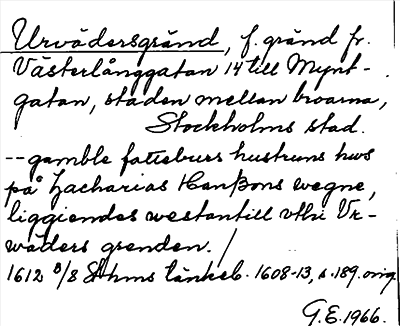 Urvädersgränd, f. gränd fr.
Västerlånggatan 14 till Mynt-
gatan, staden mellan broarna,
Stockholms stad.
--gamble fateburs hustruns hws
på Zacharias Hanßons wegne,
liggiendes westantill vthi Vr-
wäders grenden. /
1612 8/8 Sthms tänkeb. 1608-13, s. 189. orig.
G.E. 1966.